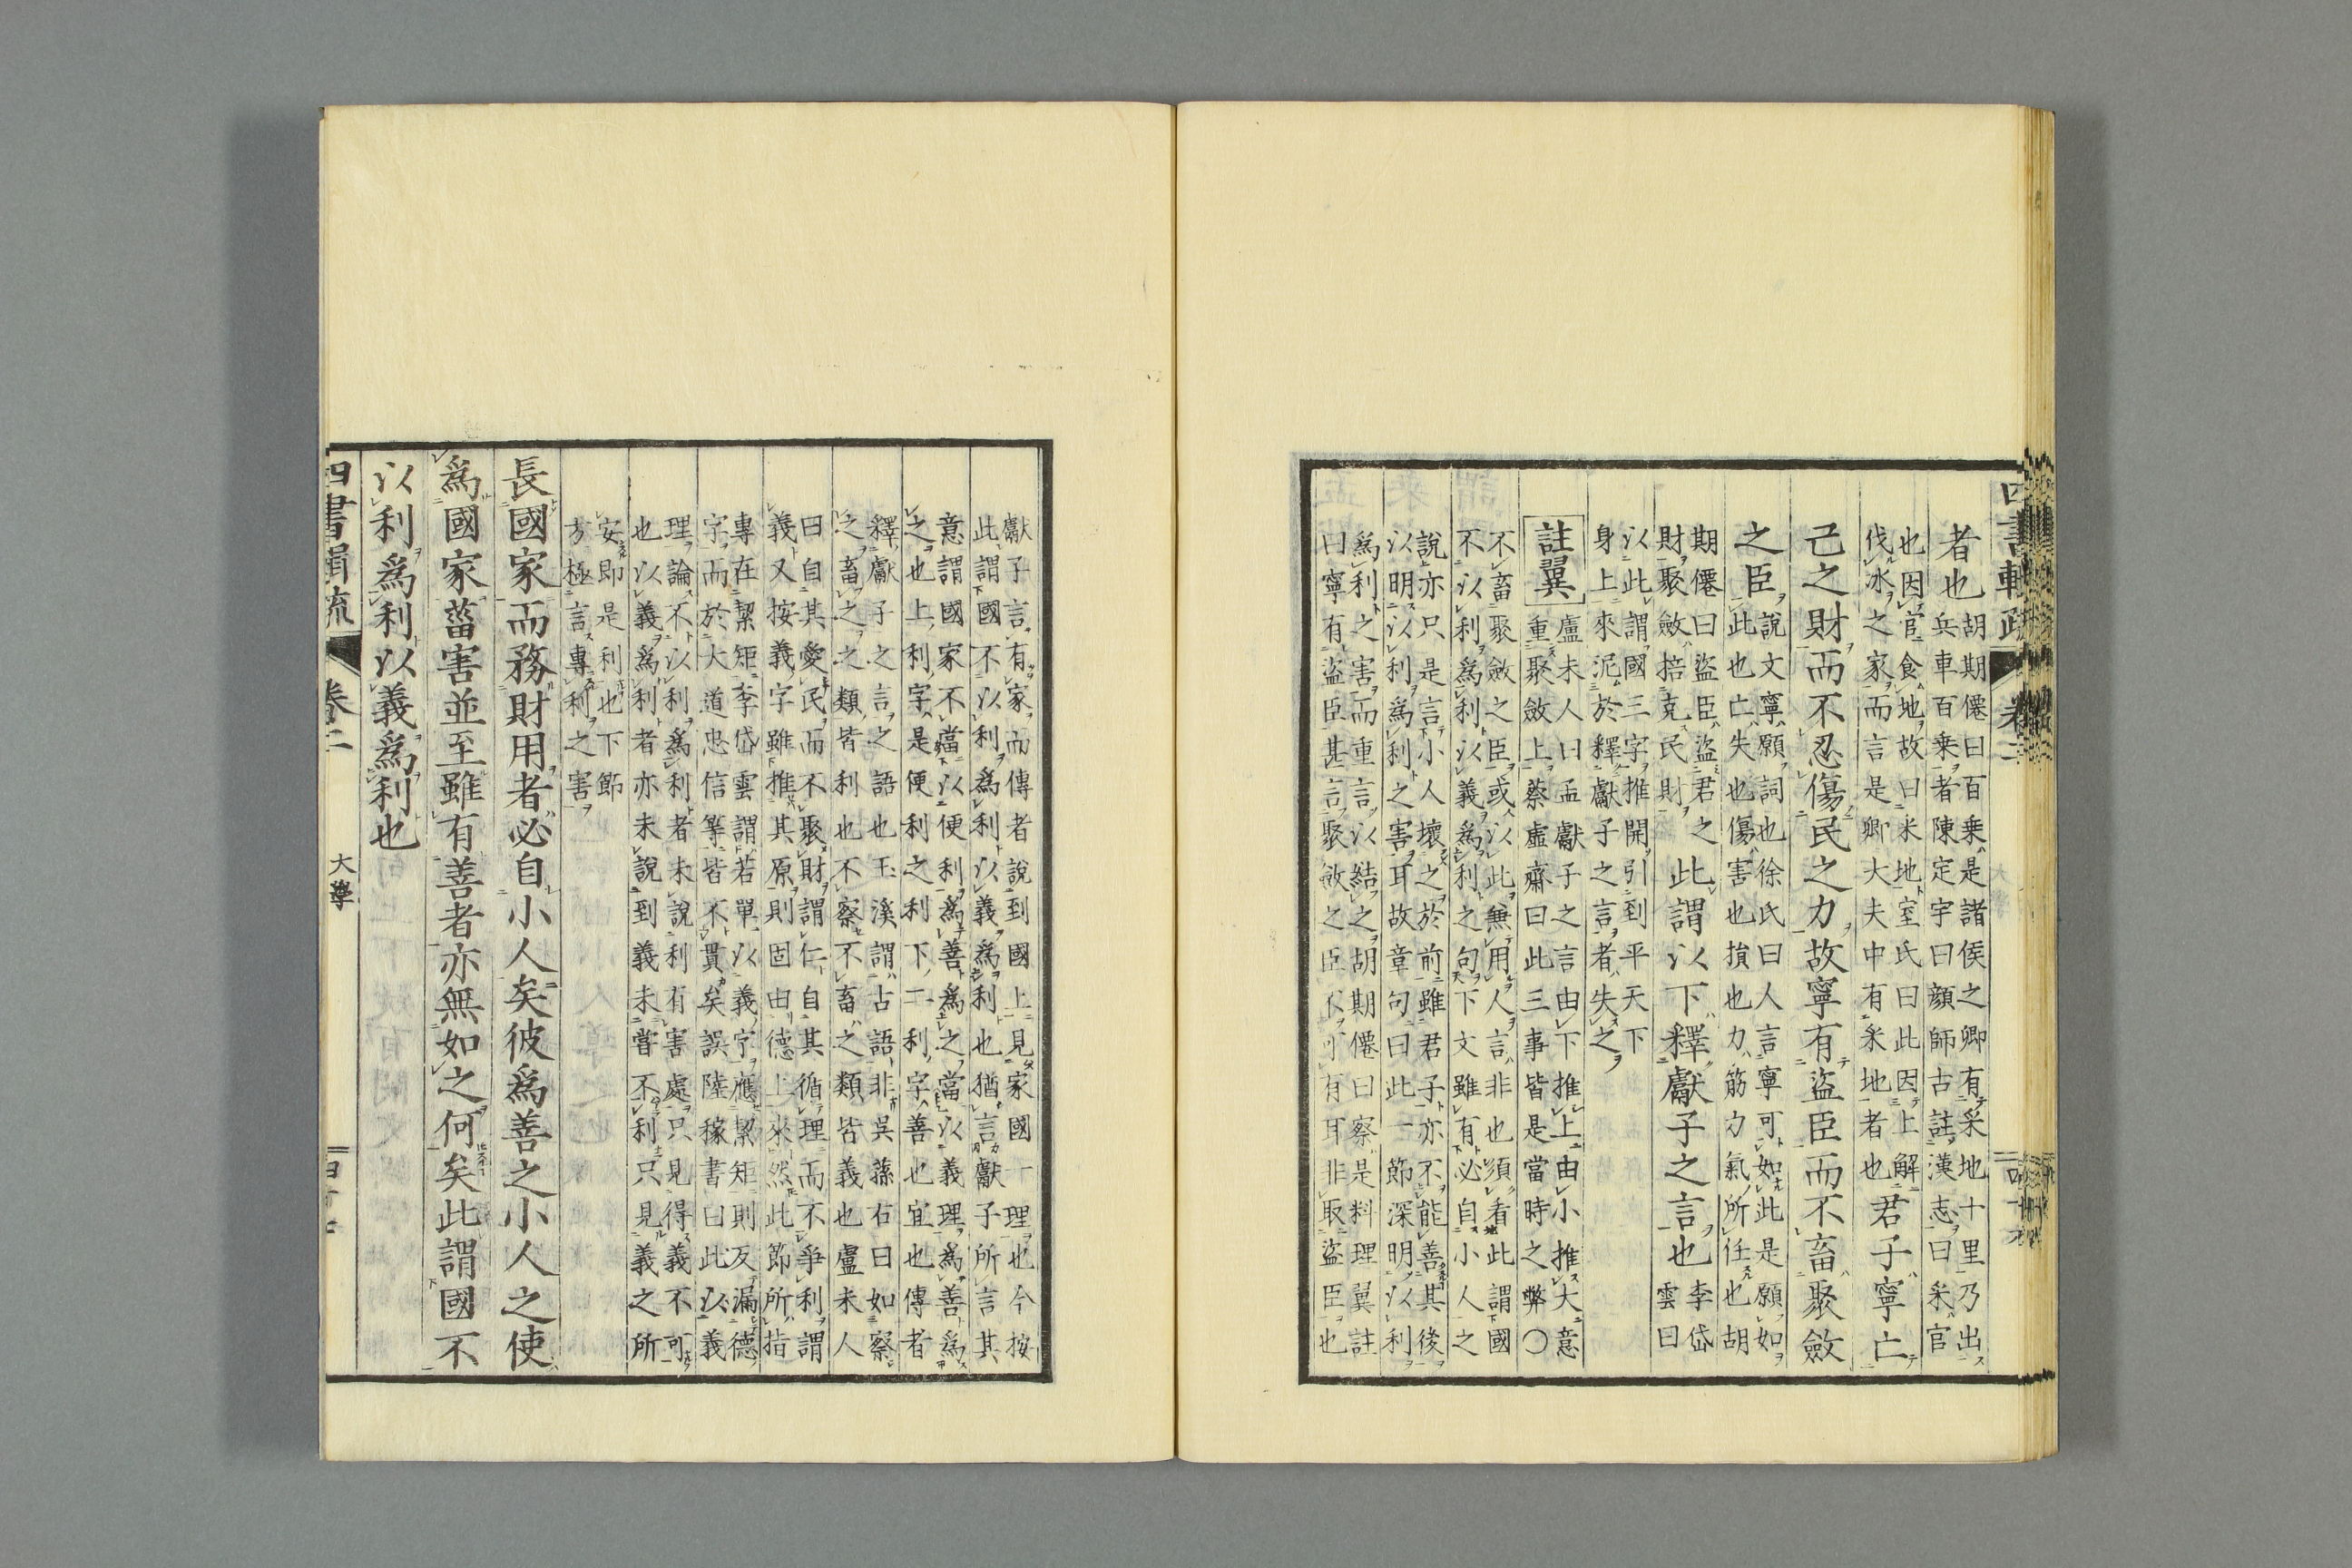 四書輯疏 卷二
者也胡期僊曰百乘是諸侯之卿有采地十里乃出
兵車百乘者陳定宇曰顏師古註漢志曰采官
也因官食地故曰采地室氏曰此因上解
伐冰之家而言是卿大夫中有采地者也君子寧亡
己之財而不忍傷民之力故寧有盜臣而不畜聚斂
之臣說文寧願詞也徐氏曰人言寧可如此是願如
此也亡失也傷害也損也力筋力氣所任也胡
期僊曰盜臣盜君之
財聚斂掊克民財此謂以下釋獻子之言也李岱
雲曰
以此謂國三字推開引到平天下
身上來泥於釋獻子之言者失之
註翼盧未人曰孟獻子之言由下推上由小推大意
重聚斂上蔡虛齋曰此三事皆是當時之弊〇
不畜聚斂之臣或以此無用人言非也須看此謂國
不以利爲利以義爲利之句下文雖有必自小人之
說亦只是言小人壞之於前雖君子亦不能善其後
以明以利爲利之害耳故章句曰此一節深明以利
爲利之害而重言以結之胡期僊曰察是料理翼註
曰寧有盜臣甚言聚斂之臣不可有耳非取盜臣也
獻子言有家而傳者說到國上見家國一理也今按
此謂國不以利爲利以義爲利也猶言獻子所言其
意謂國家不當以便利爲善爲之當以義理爲善爲
之也上利字是便利之利下二利字善也宜也傳者
釋獻子之言之語也玉溪謂古語非吳蓀右曰如察
之畜之之類皆利也不察不畜之類皆義也盧未人
曰自其愛民而不聚財謂仁自其循理而不爭利謂
義又按義字雖推其原則固由德上來然此節所指
專在絜矩李岱雲謂若單以義字應絜矩則反漏德
字而於大道忠信等皆不貫矣誤陸稼書曰此以義
理論不以利爲利者未說利有害處只見得義不可
也以義爲利者亦未說到義未嘗不利只見義之所
安即是利也下節
方極言專利之害
長國家而務財用者必自小人矣彼爲善之小人之使
爲國家菑害並至雖有善者亦無如之何矣此謂國不
以利爲利以義爲利也
四書輯疏 卷二 大學